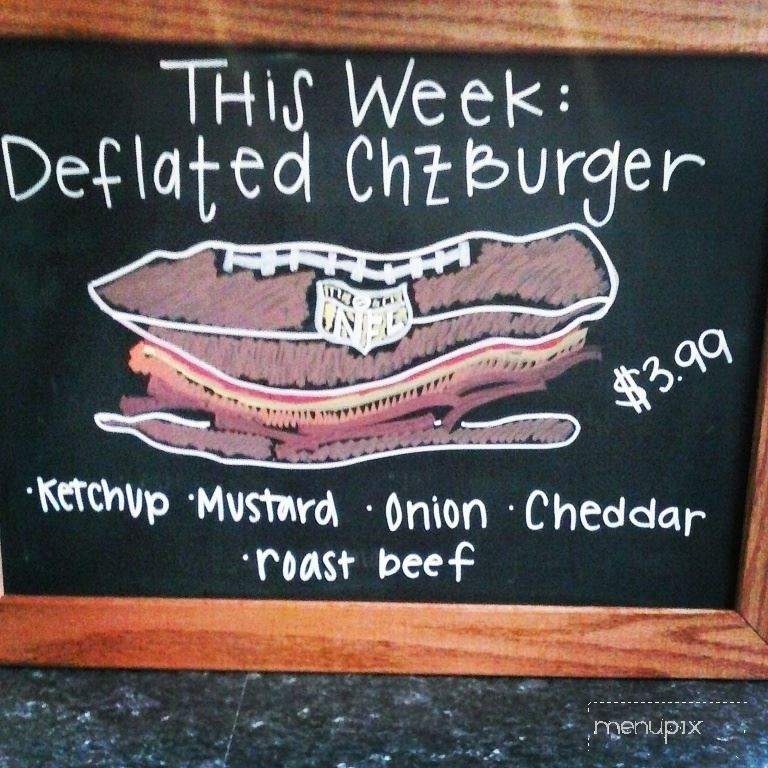 THiS Week:
Deflated ChzBurger
NFL
$3.99
·Ketchup ·Mustard ·Onion ·Cheddar
·roast beef
menupix